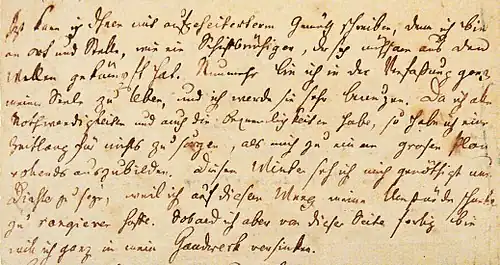 Jetzt kann ich Ihnen mit aufgeheitertem Gemüth schreiben, denn ich bin
an Ort und Stelle, wie ein Schiffbrüchiger, der sich mühsam aus den
Wellen gekämpft hat. Nunmehr bin ich in der Verfassung ganz
meiner Seele zu leben, und ich werde sie sehr benutzen. Da ich alle
Nothwendigkeiten und auch die Bequemlichkeiten habe, so habe ich eine
Zeitlang für nichts zu sorgen, als mich zu einem großen Plan
vollends auszubilden. Diesen Winter seh ich mich genöthigt nur
Dichter zu seyn, weil ich auf diesem Weeg meine Umstände schneller
zu rangieren hoffe. Sobald ich aber von dieser Seite fertig bin
will ich ganz in mein Handwerk versinken.